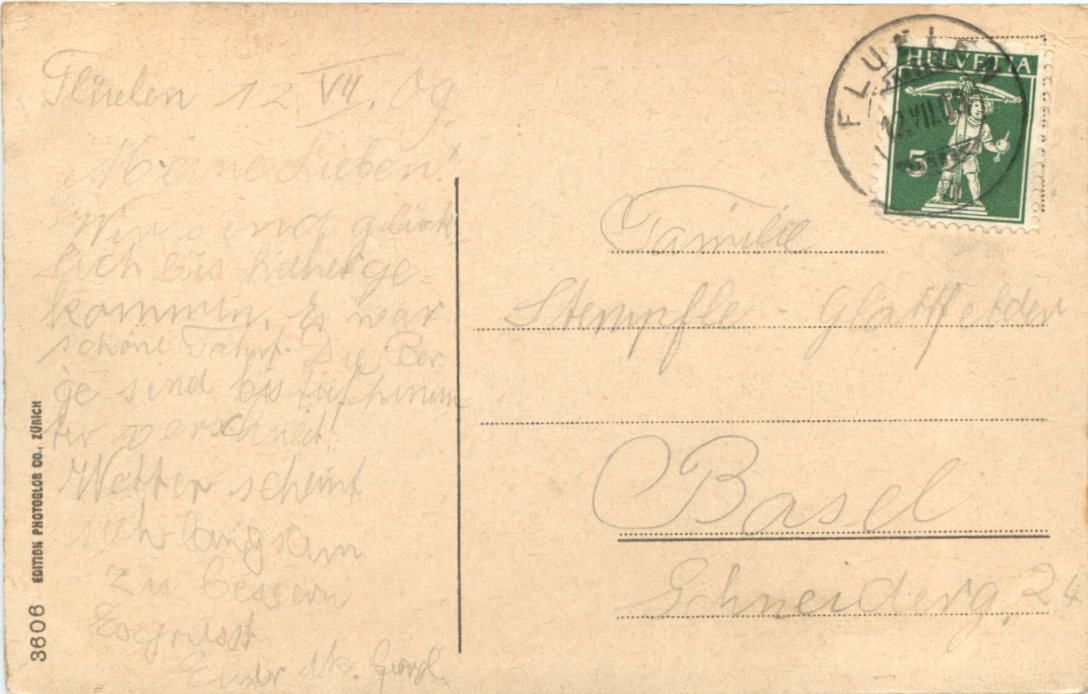 Flüelen 12 VII. 09.
Meine Lieben!
Wir sind glück
lich bis hieher ge-
kommen. Es war
schöne Fahrt. Die Ber
ge sind bis tief hinun-
ter verschneit!
Wetter scheint
sich langsam
zu bessern
Es grüsst
Euer
FLUELEN
12.VII.09
HELVETIA
5
Familie
Stempfle - Glattfelder
Basel
Schneiderg. 24
EDITION PHOTOGLOB CO., ZÜRICH
3606